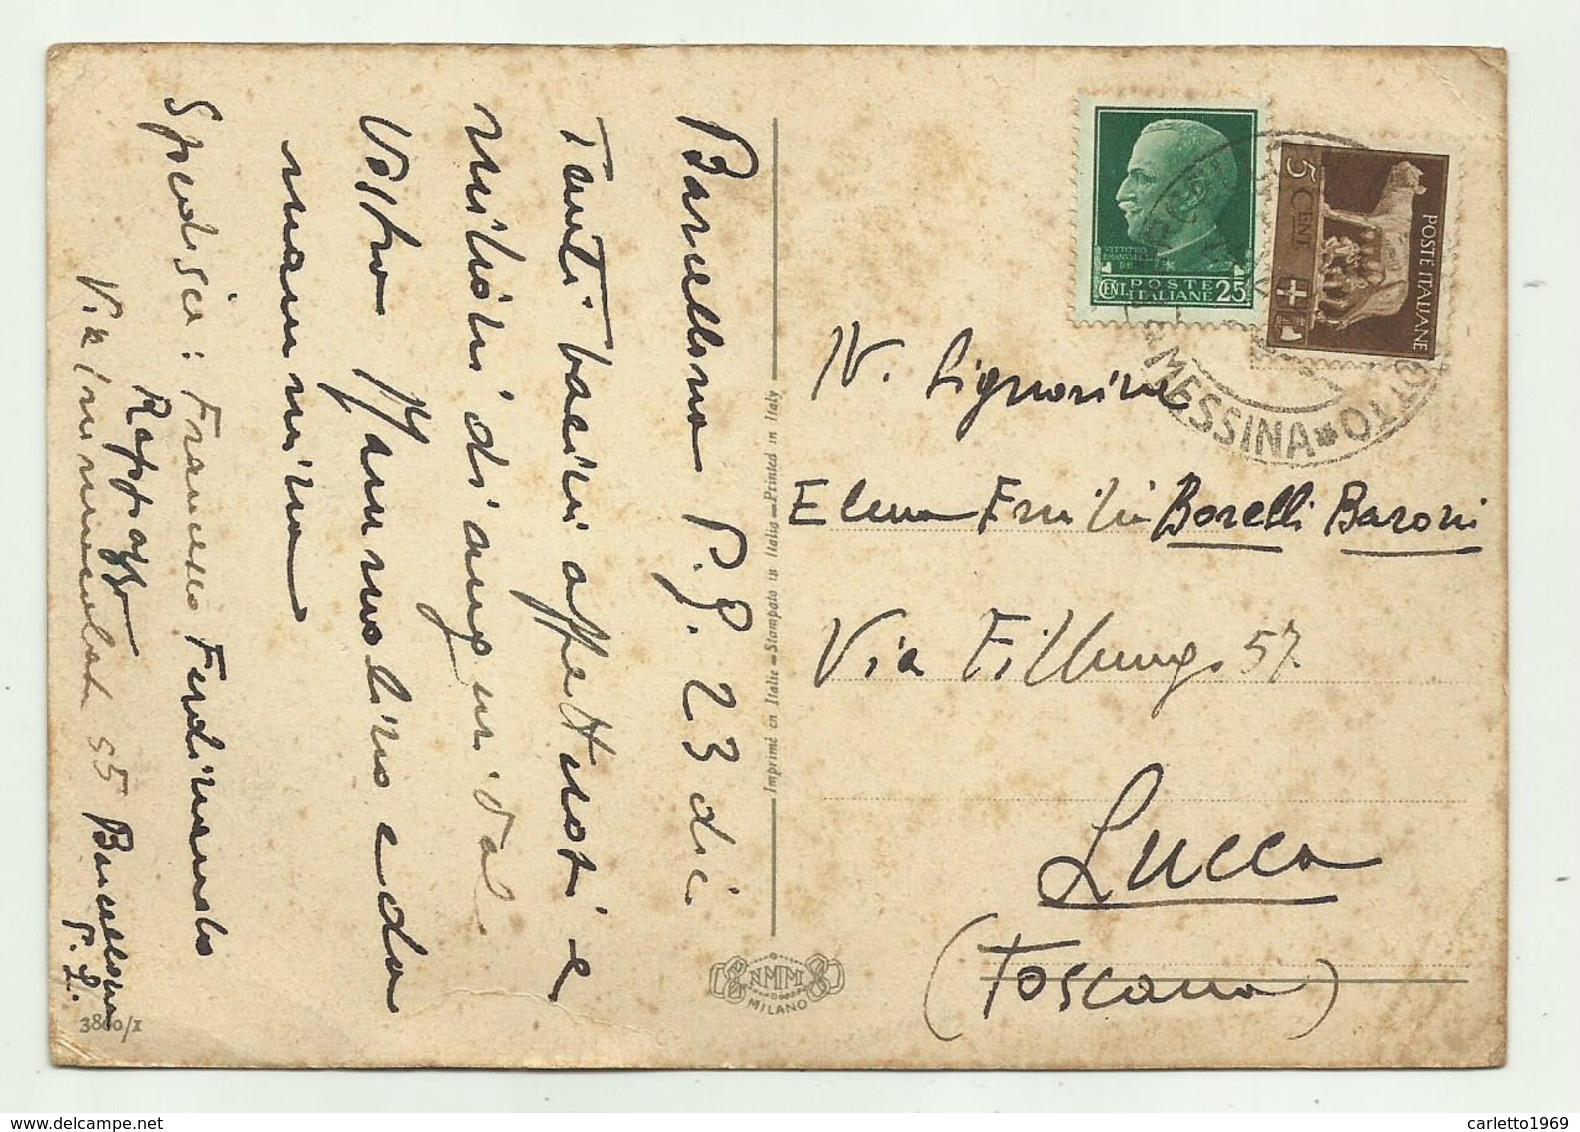 Barcellona P. G. 23 dic.
Tanti bacini affettuosi e
milioni di auguri dal
Vostro Mammolino e da
mammina
Spedisce: Francesco Ferdinando
Rappazzo
Via Immacolata 55 Barcellona
P. G.
3800/1
Imprimé en Italie – Stampato in Italia – Printed in Italy
NMM
MILANO
VITTORIO
EMANUELE
RE
CENT. POSTE
ITALIANE 25
5 CENT
POSTE ITALIANE
MESSINA
N. Signorina
Elena Emilia Borelli Baroni
Via Fillungo 57
Lucca
(Toscana)
carletto1969